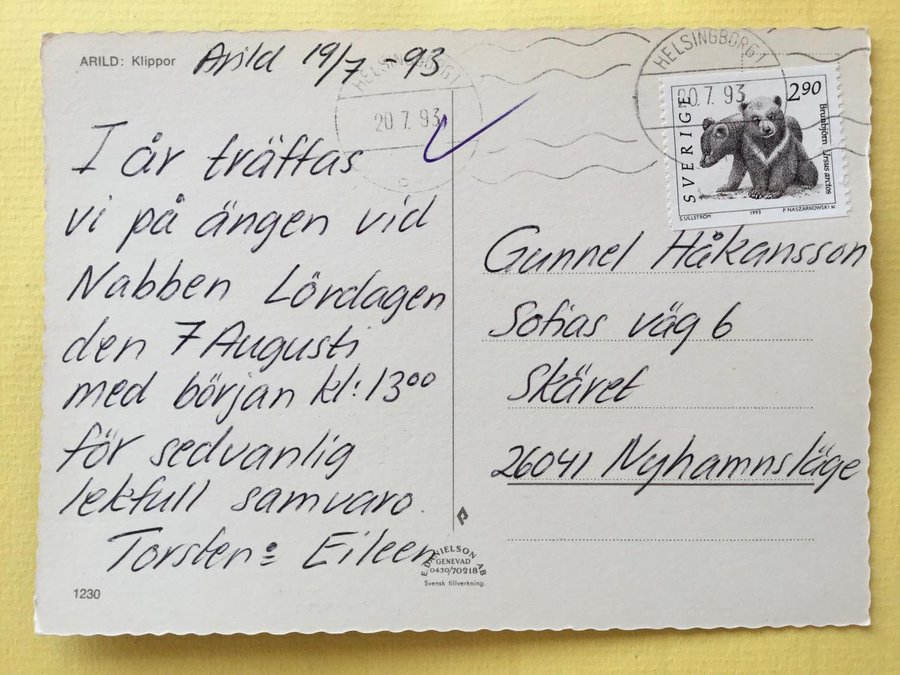 ARILD: Klippor
Arild 19/7 -93
I år träffas
vi på ängen vid
Nabben Lördagen
den 7 Augusti
med början kl: 13⁰⁰
för sedvanlig
lekfull samvaro.
Torsten o Eileen
1230
HELSINGBORG 1
20.7.93
HELSINGBORG 1
20.7.93
SVERIGE
2 90
Brunbjörn Ursus arctos
S. ULLSTRÖM 1993 P. NASZARKOWSKI SC
Gunnel Håkansson
Sofias väg 6
Skäret
26041 Nyhamnsläge
E. DANIELSON AB
GENEVAD
0430/70218
Svensk tillverkning.